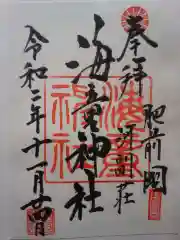 奉拝
肥前國
深堀荘
海童神社
令和二年十一月廿四日